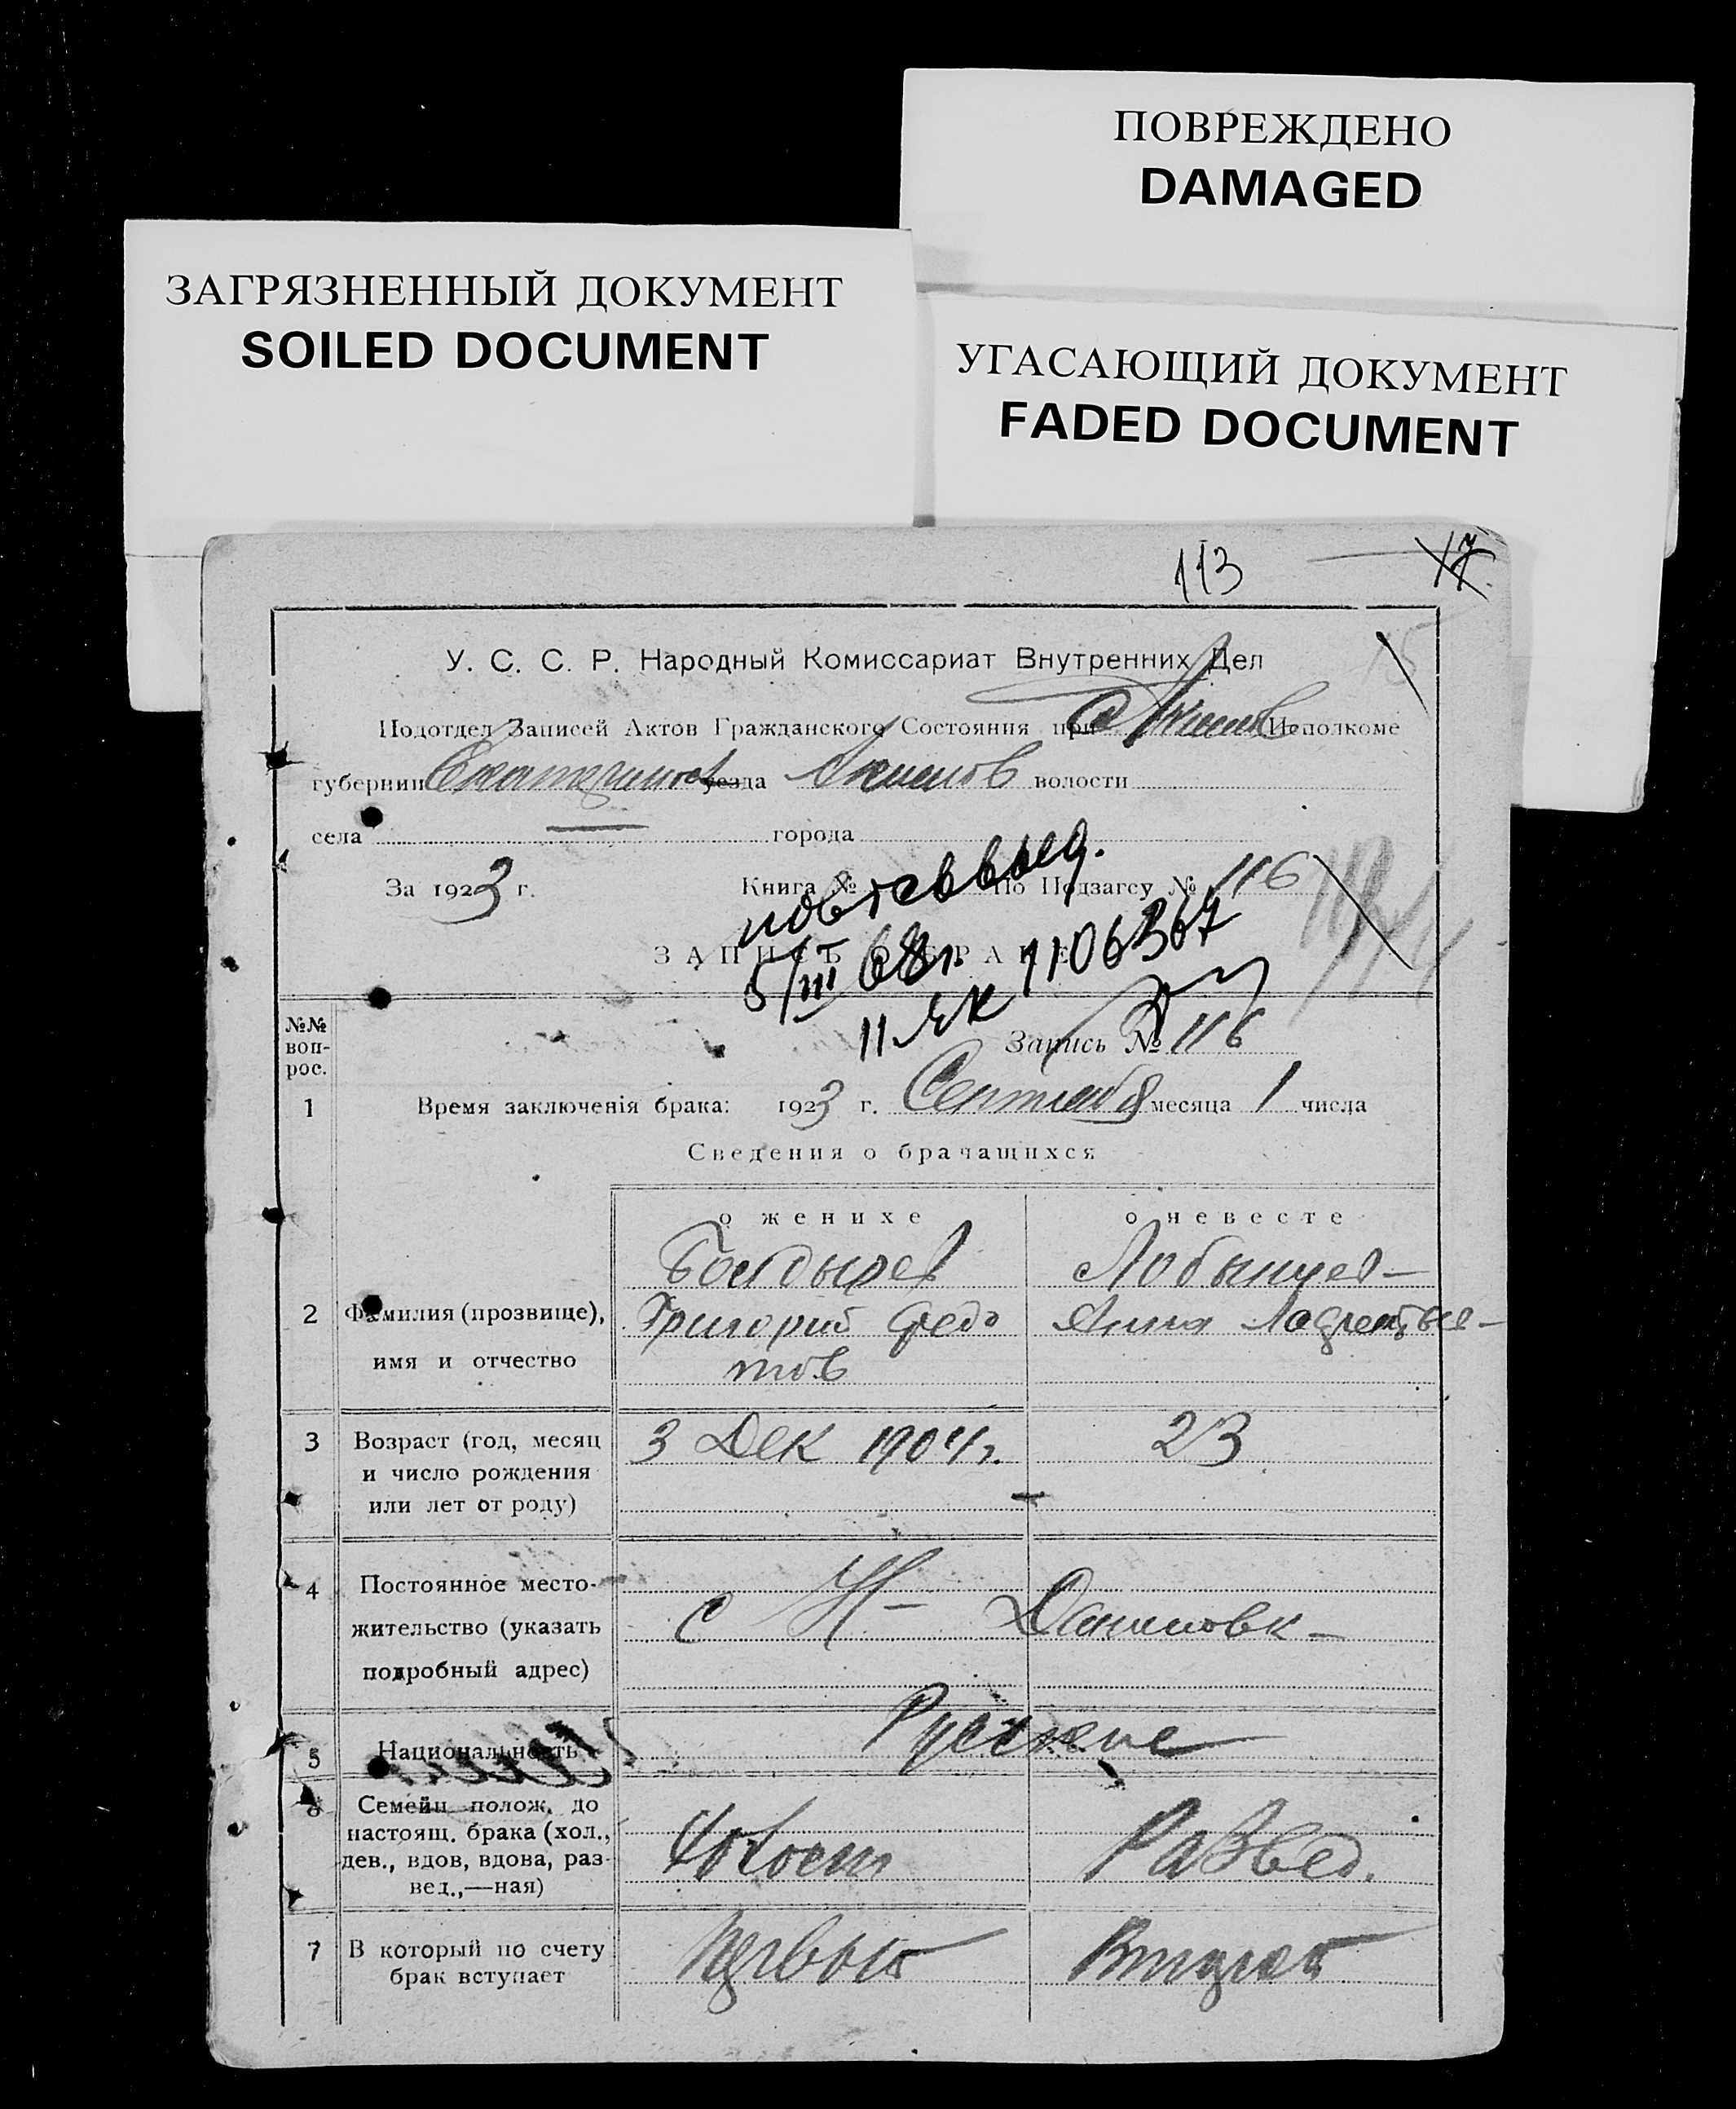 ПОВРЕЖДЕНО
DAMAGED
ЗАГРЯЗНЕННЫЙ ДОКУМЕНТ
SOILED DOCUMENT
УГАСАЮЩИЙ ДОКУМЕНТ
FADED DOCUMENT
113 17
У. С. С. Р. Народный Комиссариат Внутренних Дел
Подотдел Записей Актов Гражданского Состояния при Исполкоме
губернии Екатеринос уезда Акимов волости
села города
За 1923 г. Книга № По Подзагсу № 116
повт свв выд.
ЗАПИСЬ О БРАКЕ
5/III 68г. 1106367
II ЯК
№№ воп-
рос.
Запись № 116
1 Время заключенія брака: 1923 г. Сентября месяца 1 числа
Сведения о брачащихся
о женихе о невесте
Болдырев Лобынцев
2 Фамилия (прозвище), Григорий Федо Анна Лаврентьев
имя и отчество тов
3 Возраст (год, месяц 3 Дек 1904г. 23
и число рождения
или лет от роду)
4 Постоянное место-
жительство (указать с Н- Даниловк
подробный адрес)
5 Национальность Русские
6 Семейн полож. до
настоящ. брака (хол., Холост Развед.
дев., вдов, вдова, раз-
вед.,—ная)
7 В который по счету Первый Второй
брак вступает